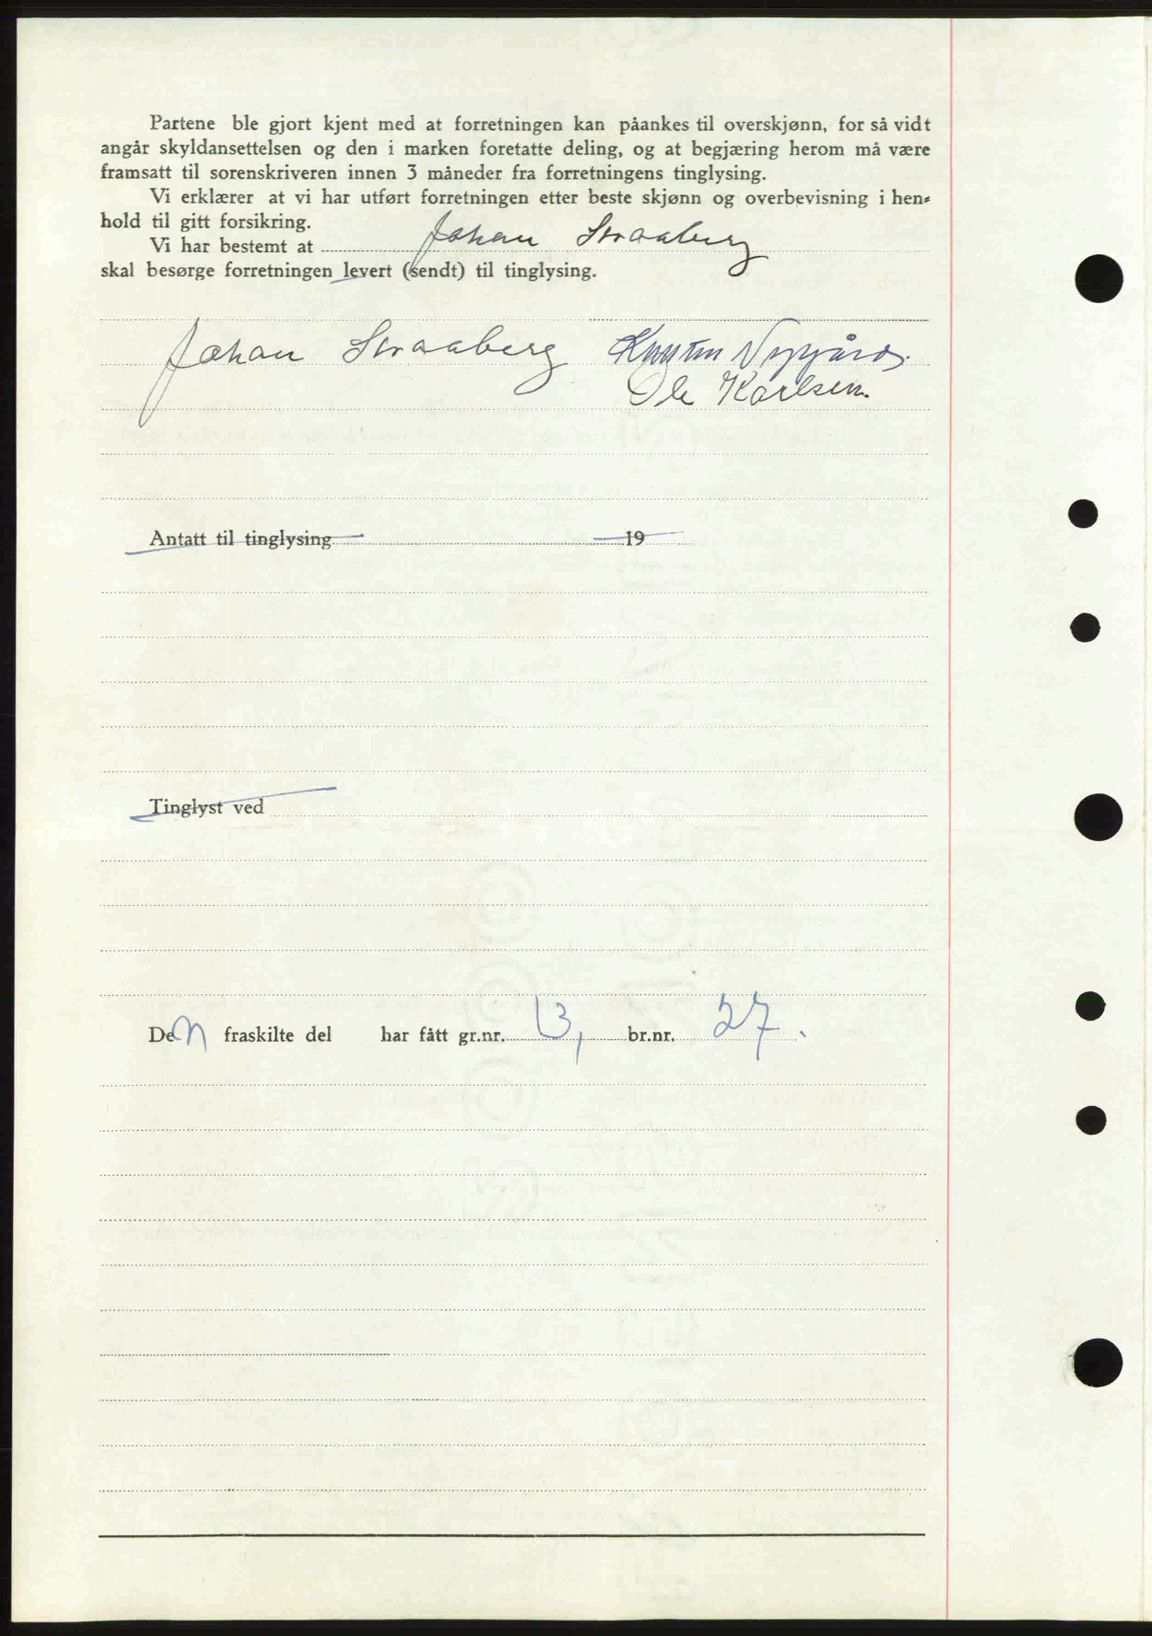 Partene ble gjort kjent med at forretningen kan påankes til overskjønn, for så vidt
angår skyldansettelsen og den i marken foretatte deling, og at begjæring herom må være
framsatt til sorenskriveren innen 3 måneder fra forretningens tinglysing.
Vi erklærer at vi har utført forretningen etter beste skjønn og overbevisning i hen-
hold til gitt forsikring.
Vi har bestemt at Johan Straaberg
skal besørge forretningen levert (sendt) til tinglysing.
Johan Straaberg
Ole Karlsen.
Antatt til tinglysing 19
Tinglyst ved
Den fraskilte del har fått gr.nr. 13, br.nr. 27.